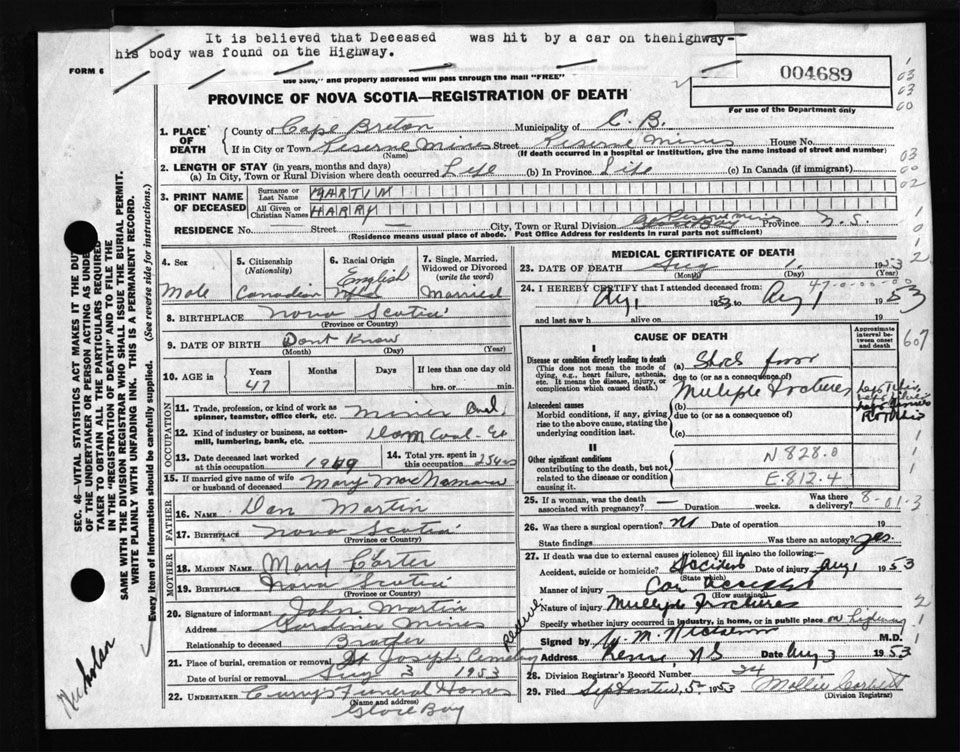 It is believed that Deceased was hit by a car on thehighway-
his body was found on the Highway.
FORM 6
use $300," and properly addressed will pass through the mail "FREE"
004689
For use of the Department only
PROVINCE OF NOVA SCOTIA—REGISTRATION OF DEATH
1. PLACE OF DEATH
County of Cape Breton Municipality of C. B.
If in City or Town Reserve Mines Street Reserve Mines House No.
(Name) (If death occurred in a hospital or institution, give the name instead of street and number)
2. LENGTH OF STAY (in years, months and days)
(a) In City, Town or Rural Division where death occurred Life (b) In Province Life (c) In Canada (if immigrant)
3. PRINT NAME OF DECEASED
Surname or Last Name MARTIN
All Given or Christian Names HARRY
RESIDENCE No. — Street — City, Town or Rural Division Reserve Mines Province N. S.
(Residence means usual place of abode. Post Office Address for residents in rural parts not sufficient)
SEC. 46—VITAL STATISTICS ACT MAKES IT THE DUTY
OF THE UNDERTAKER OR PERSON ACTING AS UNDER
TAKER TO OBTAIN ALL THE PARTICULARS REQUIRED
IN THE "REGISTRATION OF DEATH" AND TO FILE THE
SAME WITH THE DIVISION REGISTRAR WHO SHALL ISSUE THE BURIAL PERMIT.
WRITE PLAINLY WITH UNFADING INK. THIS IS A PERMANENT RECORD.
Every item of information should be carefully supplied. (See reverse side for instructions.)
4. Sex
Male
5. Citizenship
(Nationality)
Canadian
6. Racial Origin
English
7. Single, Married, Widowed or Divorced
(write the word)
Married
8. BIRTHPLACE Nova Scotia
(Province or Country)
9. DATE OF BIRTH Dont Know
(Month) (Day) (Year)
10. AGE in Years Months Days If less than one day
47 hrs. or min.
OCCUPATION
11. Trade, profession, or kind of work as spinner, teamster, office clerk, etc. Miner
12. Kind of industry or business, as cotton-mill, lumbering, bank, etc. Dom Coal Co
13. Date deceased last worked at this occupation 1949
14. Total yrs. spent in this occupation 25 yrs
15. If married give name of wife or husband of deceased Mary MacNamara
FATHER
16. NAME Dan Martin
17. BIRTHPLACE Nova Scotia
(Province or Country)
MOTHER
18. MAIDEN NAME Mary Carter
19. BIRTHPLACE Nova Scotia
(Province or Country)
20. Signature of informant John Martin
Address Gardiner Mines
Relationship to deceased Brother
21. Place of burial, cremation or removal St Josephs Cemetery Reserve
Date of burial or removal Aug 3 1953
22. UNDERTAKER Curry's Funeral Homes
(Name and address)
Glace Bay
MEDICAL CERTIFICATE OF DEATH
23. DATE OF DEATH Aug 1 1953
(Month) (Day) (Year)
24. I HEREBY CERTIFY that I attended deceased from:
Aug 1 1953 to Aug 1 1953
and last saw h alive on 19
CAUSE OF DEATH
Approximate interval between onset and death
I
Disease or condition directly leading to death
(This does not mean the mode of dying, e.g., heart failure, asthenia, etc. It means the disease, injury, or complication which caused death.)
(a) Shock from
due to (or as a consequence of)
Multiple fractures
Antecedent causes
Morbid conditions, if any, giving rise to the above cause, stating the underlying condition last.
(b)
due to (or as a consequence of)
(c)
II
Other significant conditions
contributing to the death, but not related to the disease or condition causing it.
N 828.0
E.812.4
607
25. If a woman, was the death associated with pregnancy? — Duration weeks. Was there a delivery?
26. Was there surgical operation? No Date of operation 19
State findings Was there an autopsy? yes
27. If death was due to external causes (violence) fill in also the following:
Accident, suicide or homicide? Accident Date of injury Aug 1 1953
(State which)
Manner of injury Car accident
(How sustained)
Nature of injury Multiple Fractures
Specify whether injury occurred in industry, in home, or in public place on highway
Signed by M.D.
Address Reserve, NS Date Aug 3 1953
28. Division Registrar's Record Number 24
29. Filed September 5, 1953 Mollie Corbett
(Division Registrar)
Nicholson